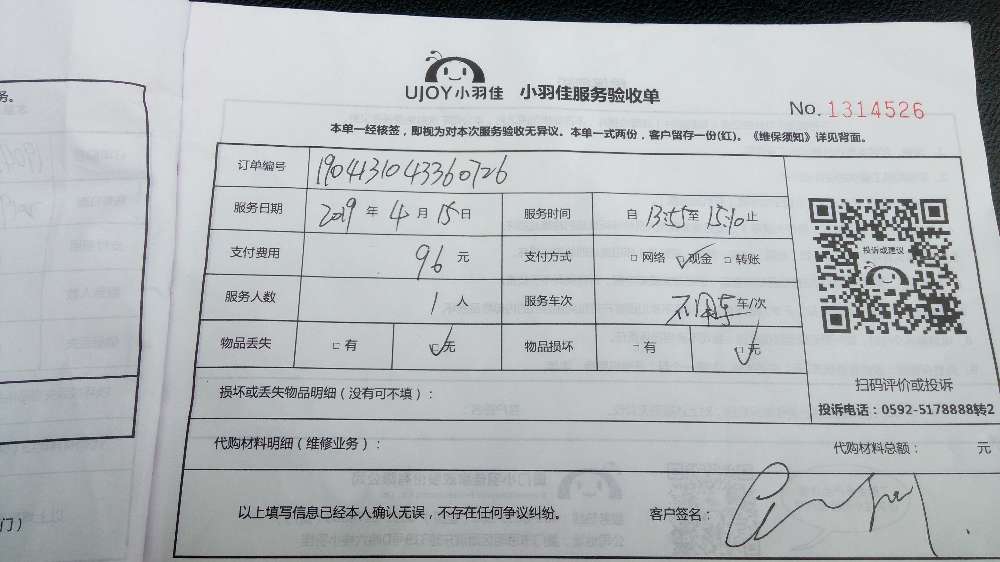 务。
UJOY小羽佳 小羽佳服务验收单
No. 1314526
本单一经核签，即视为对本次服务验收无异议。本单一式两份，客户留存一份(红)。《维保须知》详见背面。
订单编号 1904131043360726
服务日期 2019 年 4 月 15 日 服务时间 自 13:55 至 15:10 止
支付费用 96 元 支付方式 □网络 ☑现金 □转账
服务人数 1 人 服务车次 不用车 车/次
物品丢失 □有 ☑无 物品损坏 □有 ☑无
投诉或建议
扫码评价或投诉
投诉电话：0592-5178888转2
损坏或丢失物品明细（没有可不填）：
代购材料明细（维修业务）： 代购材料总额： 元
以上填写信息已经本人确认无误，不存在任何争议纠纷。 客户签名：
门）